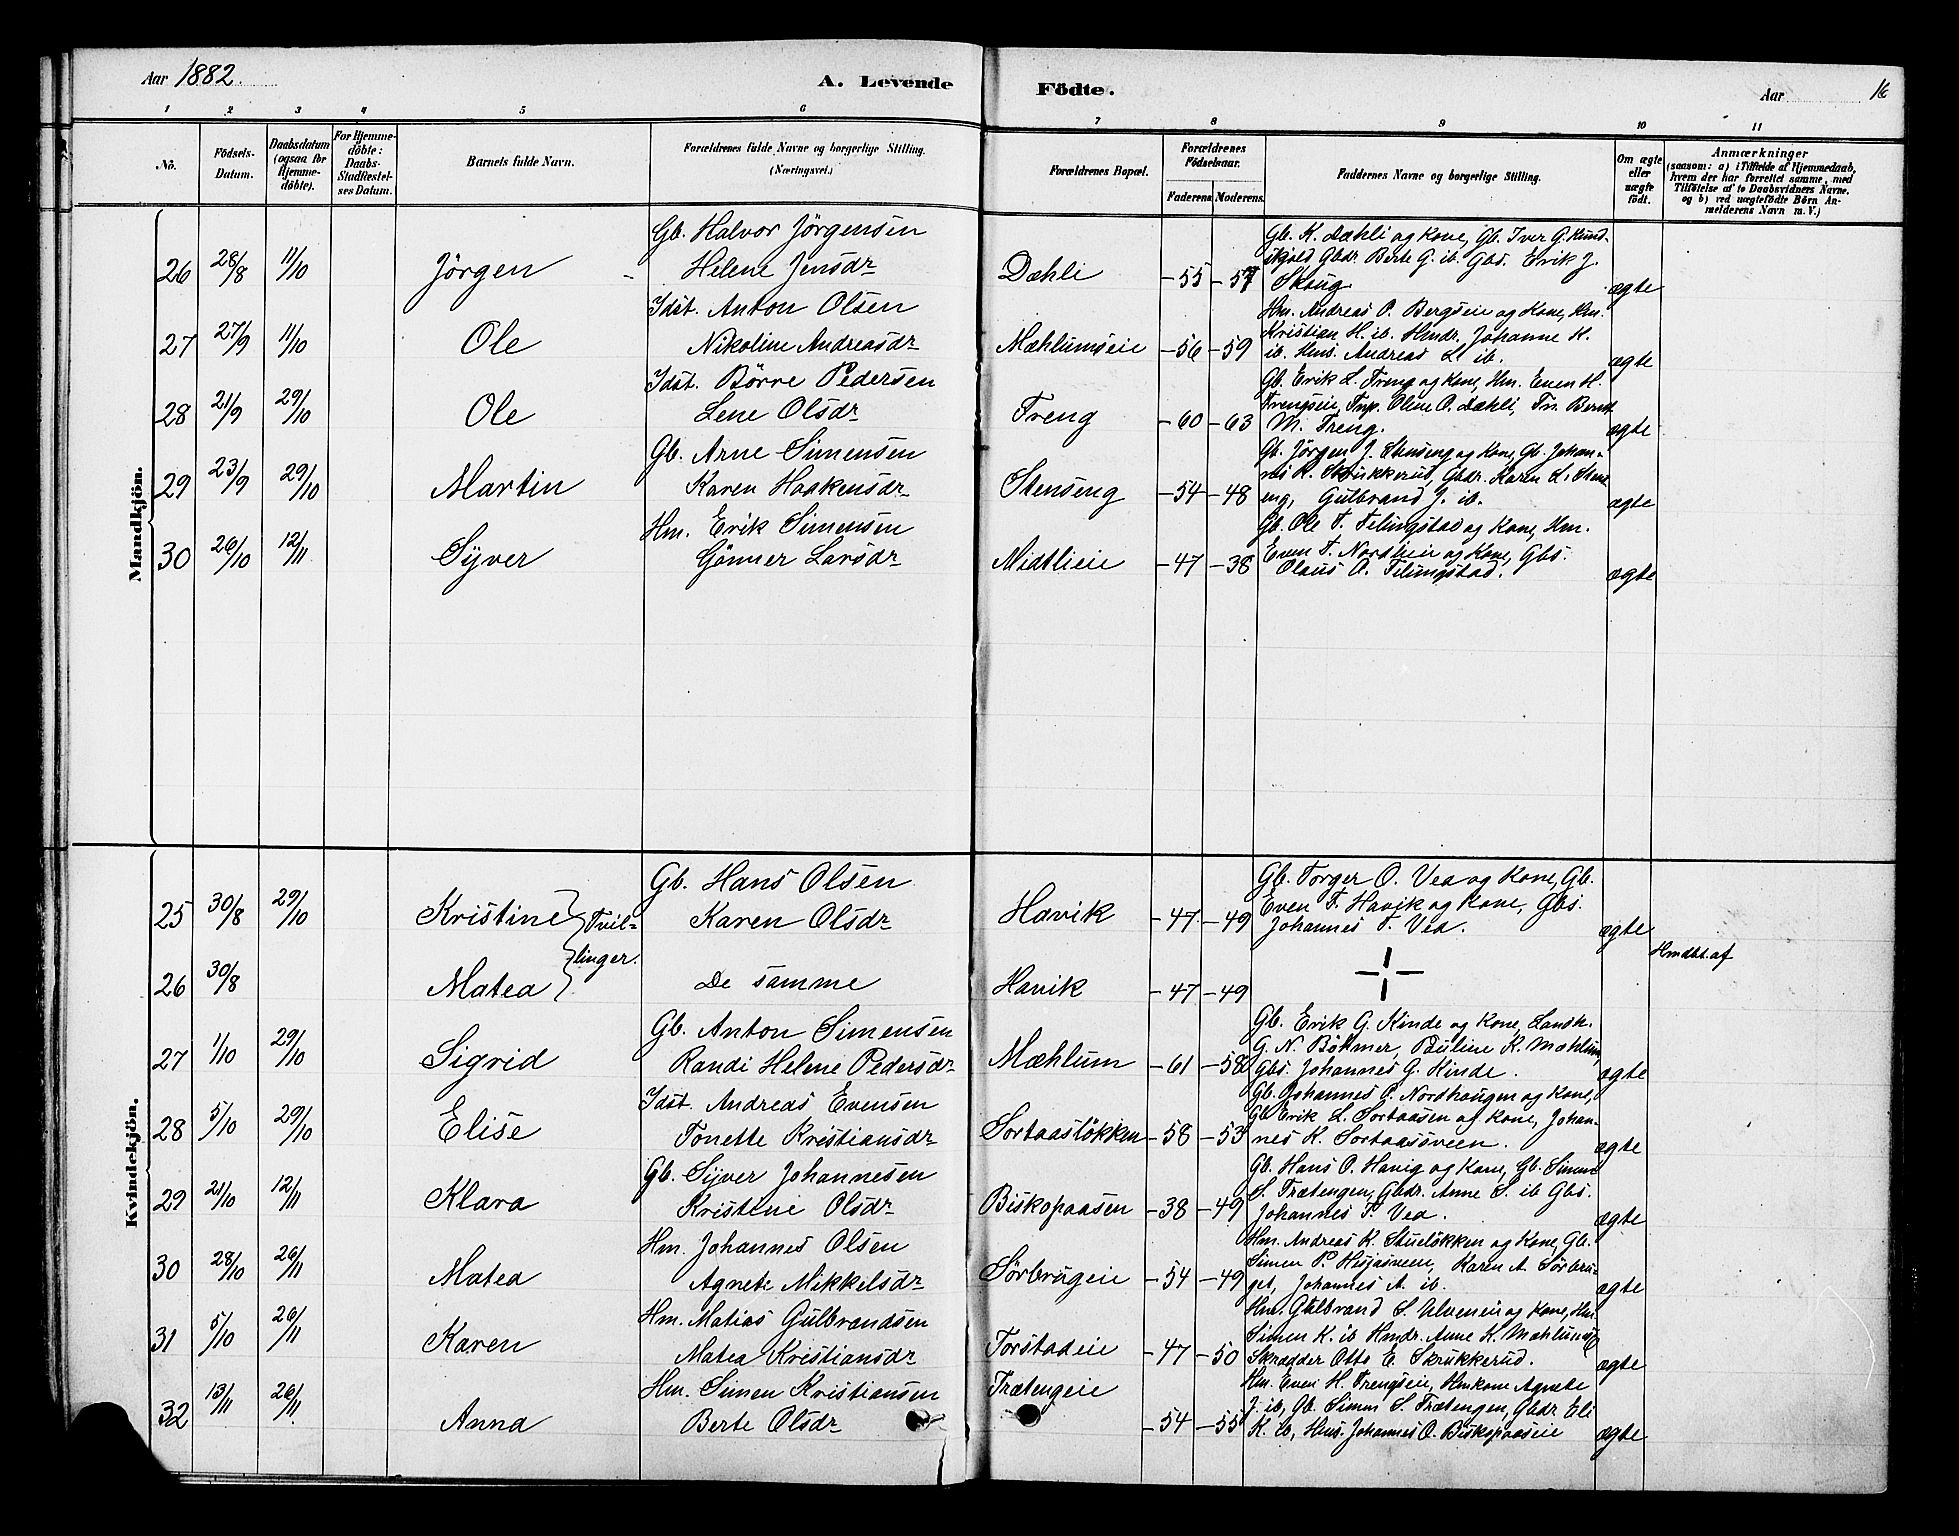 Aar 1882.
A. Levende
Födte.
Aar
16
1 2 3 4 5 6 7 8 9 10 11
No.
Födsels-Datum.
Daabsdatum (ogsaa for Hjemme-döbte).
For Hjemme-döbte: Daabs-Stadfæstel-ses Datum.
Barnets fulde Navn.
Forældrenes fulde Navne og borgerlige Stilling. (Næringsvei.)
Forældrenes Bopæl.
Forældrenes Födselsaar.
Faderens. Moderens.
Faddernes Navne og borgerlige Stilling.
Om ægte eller uægte födt.
Anmærkninger
(saasom: a) i Tilfælde af Hjemmedaab, hvem der har forrettet samme, med Tilföielse af to Daabsvidners Navne, og b) ved uægtefödte Börn An-melderens Navn m. V.)
Mandkjön.
Gb. Halvor Jörgensen
26 28/8 11/10 Jörgen Helene Jensdr Dæhli -55 -57 ægte
Gb. K. Dæhli og Kone, Gb. Iver G. Rund-
skjold Gbdr. Berte G. ib. Gbs. Erik J.
Skoug.
Idst. Anton Olsen
27 27/9 11/10 Ole Nikoline Andreasdr Mæhlumseie -56 -59 ægte
Hm. Andreas P. Bergseie og Kone, Hm.
Kristian H. ib. Hmdr. Johanne K.
ib. Hms. Andreas L. ib.
Idst. Börre Pedersen
28 21/9 29/10 Ole Lene Olsdr Freng -60 -63 ægte
Gb. Erik L. Freng og Kone, Hm. Even H.
Frengseie, Tnp. Oline O. Dæhli, Tn. Bernt
M. Freng.
Gb. Arne Simensen
29 23/9 29/10 Martin Karen Haakensdr Stenseng -54 -48 ægte
Gb. Jörgen J. Stenseng og Kone, Gb. Johan-
nes K. Skrukkerud, Gbdr. Karen L. Stens
eng, Gulbrand J. ib.
Hm. Erik Simensen
30 26/10 12/11 Syver Gönner Larsdr Midtlieie -47 -38 ægte
Gb. Ole T. Filingstad og Kone, Hm.
Even T. Nordlieie og Kone, Gbs.
Olaus O. Filingstad.
Kvindekjön.
Gb. Hans Olsen
25 30/8 29/10 Kristine Tvil- Karen Olsdr Havik -47 -49 ægte
Gb. Torger O. Vea og Kone, Gb.
Even T. Havik og Kone, Gbs.
Johannes T. Vea.
linger.
26 30/8 Matea De samme Havik -47 -49 Hmdbt. af
Gb. Anton Simensen
27 1/10 29/10 Sigrid Randi Helene Pedersdr Mæhlum -61 -58 ægte
Gb. Erik G. Kinde og Kone, Landh.
G. N. Böhmer, Pauline K. Mæhlum,
Gbs. Johannes G. Kinde.
Idst. Andreas Evensen
28 5/10 29/10 Elise Tonette Kristiansdr Sortaaslökken -58 -53 ægte
Gb. Johannes P. Nordhaugen og Kone,
Gb Erik L. Sortaasen og Kone, Johan-
nes K. Sortaassveen.
Gb. Syver Johannesen
29 21/10 12/11 Klara Kristine Olsdr Biskopaasen -38 -49 ægte
Gb. Hans O. Havig og Kone, Gb. Simen
S. Trætengen, Gbdr. Anne S. ib Gbs.
Johannes T. Vea.
Hm. Johannes Olsen
30 28/10 26/11 Matea Agnete Mikkelsdr Sörbrugeie -54 -49 ægte
Hm. Andreas K. Stuelökken og Kone, Gb.
Simen P. Hisjasveen, Karen A. Sörbru-
get, Johannes A. ib.
Hm. Matias Gulbrandsen
31 5/10 26/11 Karen Matea Kristiansdr Torstadeie -47 -50 ægte
Hm. Gulbrand S. Ulveneie og Kone, Hm
Simen K. ib Hmdr. Anne K. Mæhlums E
Skrædder Otto E. Skrukkerud.
Hm. Simen Kristiansen Trætengeie
32 13/11 26/11 Anna Berte Olsdr -54 -55 ægte
Hm. Even H. Frengseie, Hmkone Agnete
J. ib, Gb. Simen S. Trætengen, Gbdr Eli
K. ib, Hms. Johannes O. Biskopaaseie